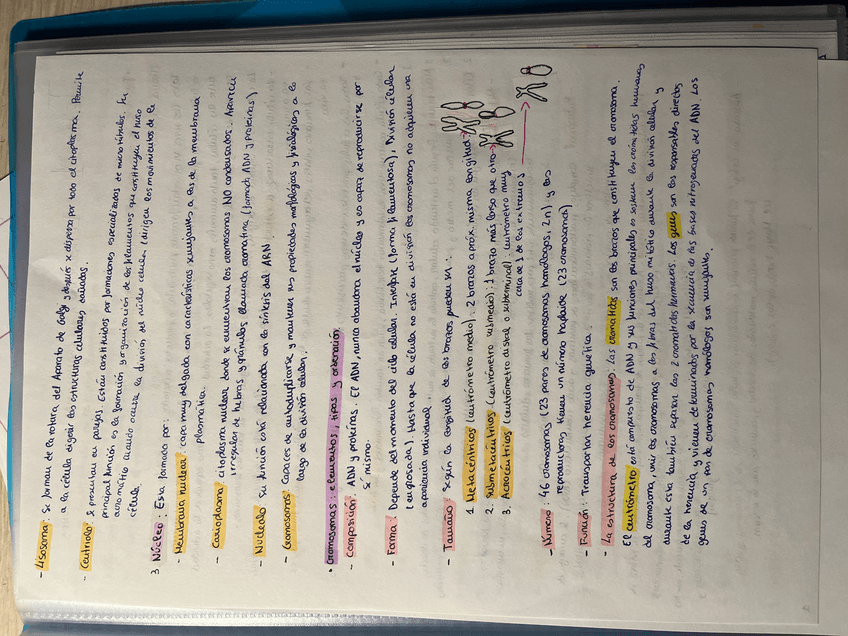 - Lisosoma: Se forman de la rotura del Aparato de Golgi y después se dispersa por todo el citoplasma. Permite
a la célula digerir las estructuras celulares dañadas.
- Centriolo: Se presentan en parejas. Están constituidos por formaciones especializadas de microtúbulos. Su
principal función es la formación y organización de los filamentos que constituyen el huso
acromático cuando ocurre la división del núcleo celular (dirigen los movimientos de la
célula.
3. Núcleo: Esta formado por:
- Membrana nuclear: capa muy delgada con características semejantes a las de la membrana
plasmática.
- Carioplasma: citoplasma nuclear donde se encuentran los cromosomas NO condensados. Aparecen
irregular de hebras y gránulos llamada cromatina (formada ADN y proteínas)
- Nucleolo: Su función está relacionada con la síntesis del ARN.
- Cromosomas: Capaces de autoduplicarse y mantener sus propiedades morfológicas y fisiológicas a lo
largo de la división celular.
• Cromosomas: elementos, tipos y ordenación
- Composición: ADN y proteínas. El ADN, nunca abandona el núcleo y es capaz de reproducirse por
sí mismo.
- Forma: Depende del momento del ciclo celular. Interfase (forma filamentosa), División celular
(engrosada). Hasta que la célula no está en división los cromosomas no adquieren una
apariencia individual.
- Tamaño: Según la longitud de los brazos pueden ser:
1. Metacéntricos (centrómetro medio): 2 brazos aprox. misma longitud
2. Submetacéntrios (centrómetro submedio): 1 brazo más largo que otro
3. Acrocéntricos (centrómetro distal o subterminal). Centrómetro muy
cerca de 1 de los extremos
- Número: 46 cromosomas (23 pares de cromosomas homólogos, 2n) y las
reproductoras tienen un número haploide (23 cromosomas)
- Función: Transportan herencia genética.
- La estructura de los cromosomas: Las cromatidas son los brazos que constituyen el cromosoma.
El centrómetro está compuesto de ADN y sus funciones principales es sostener las cromátidas hermanas
del cromosoma, unir los cromosomas a las fibras del huso mitótico durante la división celular y
durante esta también separa las 2 cromatidas hermanas. Los genes son los responsables directos
de la herencia y vienen determinados por la secuencia de las bases nitrogenadas del ADN. Los
genes de un par de cromosomas homólogos son semejantes.